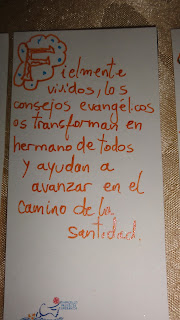 Fielmente
vividos, los
consejos evangélicos
os transforman en
hermano de todos
y ayudan a
avanzar en el
camino de la
santidad.